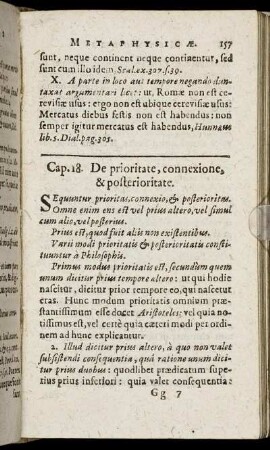 METAPHYSICÆ. 157
sunt, neque continent neque continentur, sed
sent cum illo idem, Scal. ex. 307. s. 39.
X. A parte in loco aut tempore negando dun-
taxat argumentari licet: ut, Romæ non est ce-
revisiæ usus: ergo non est ubique cerevisiæ usus:
Mercatus diebus festis non est habendus: non
semper igitur mercatus est habendus, Hunnæus
lib. 5. Dial. pag. 305.
Cap. 18. De prioritate, connexione,
& posterioritate.
SEquuntur prioritas, connexio, & posterioritas.
Omne enim ens est vel prius altero, vel simul
cum alio, vel posterius.
Prius est, quod fuit aliis non existentibus.
Varii modi prioritatis & posterioritatis consti-
tuuntur à Philosophis.
Primus modus prioritatis est, secundùm quem
unum dicitur prius tempore altero: ut qui hodie
nascitur, dicitur prior tempore eo, qui nascetur
cras. Hunc modum prioritatis omnium præ-
stantissimum esse docet Aristoteles; vel quia no-
tissimus est, vel certè quia cæteri modi per ordi-
nem ad hunc explicantur.
2. Illud dicitur prius altero, à quo non valet
subsistendi consequentia, quâ ratione unum dici-
tur prius duobus: quodlibet prædicatum supe-
rius prius inferiori: quia valet consequentia:
Gg 7